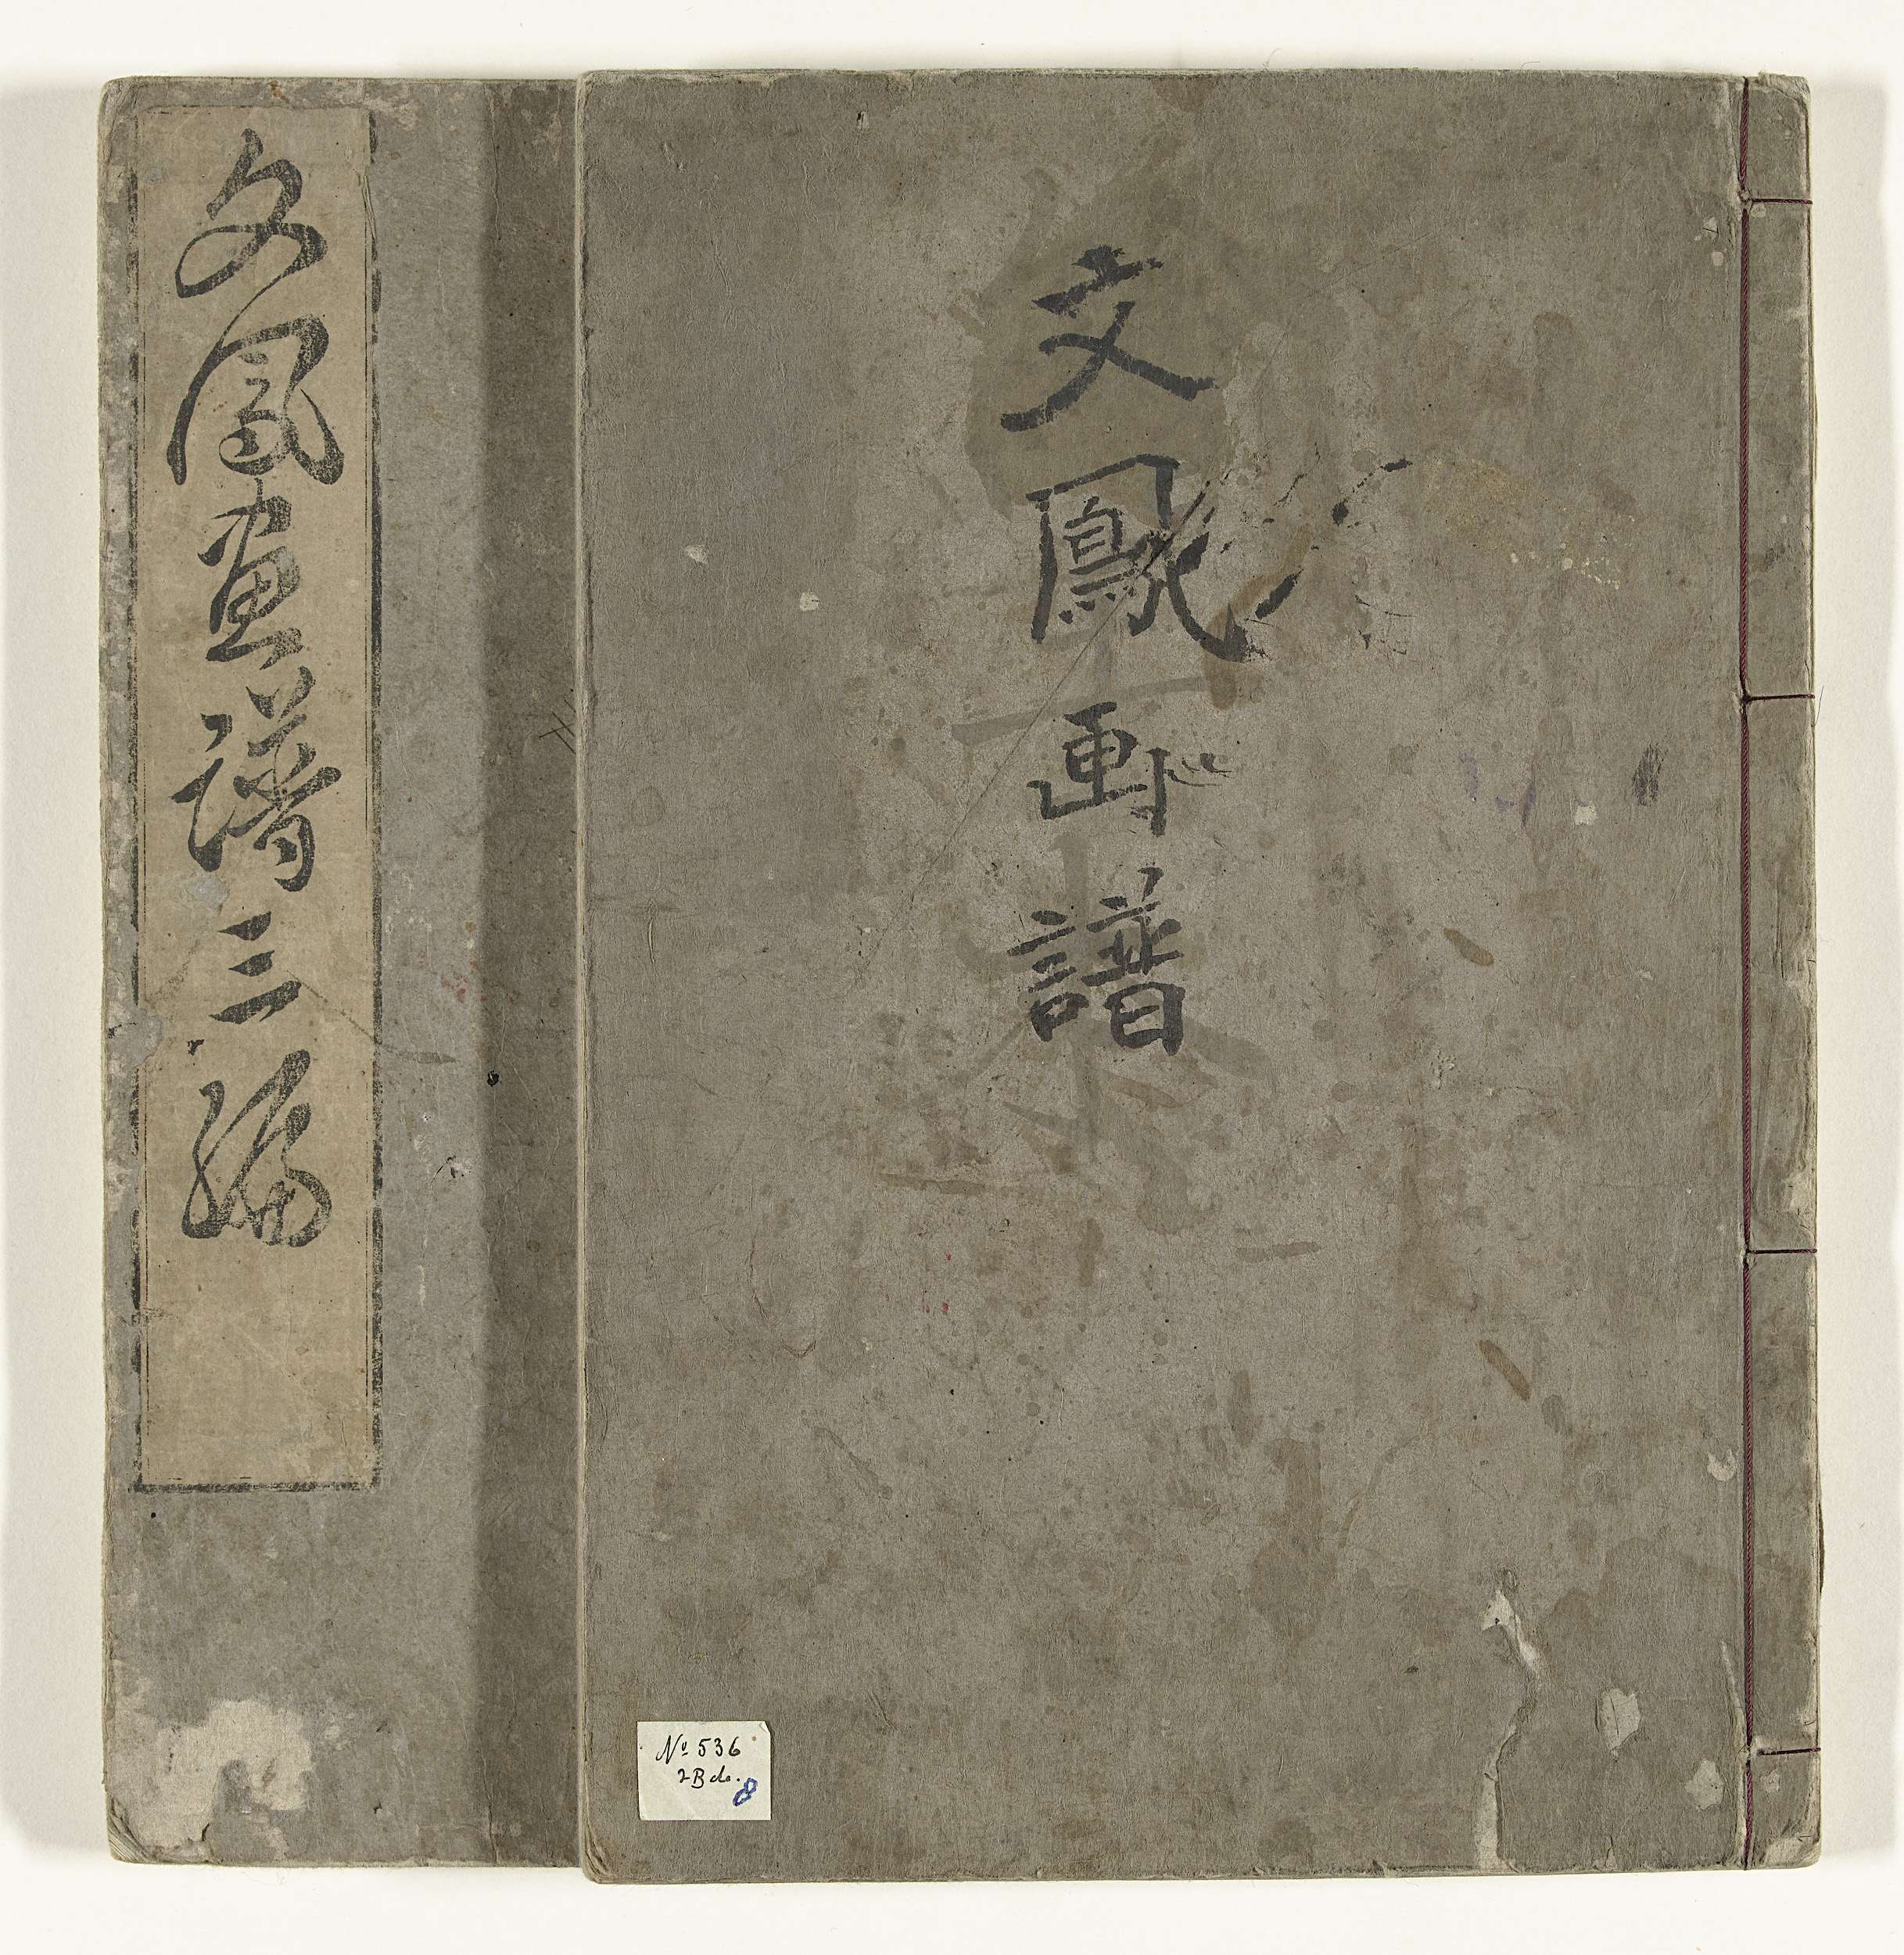 文鳳画譜
文鳳画譜三編
Nº 536
2 Bde.
8